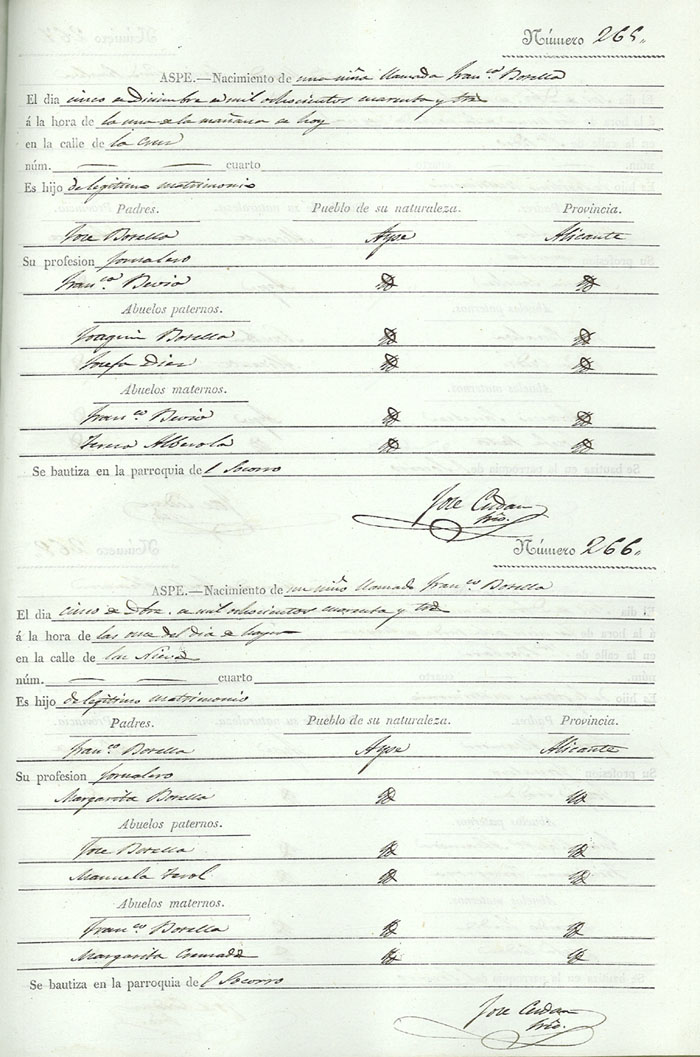 Número 265.
ASPE.—Nacimiento de una niña llamada Fran.ca Botella
El dia cinco de Diciembre de mil ochocientos cuarenta y tres
á la hora de la una de la mañana de hoy
en la calle de la Cruz
núm. — — cuarto
Es hijo de legitimo matrimonio
Padres. Pueblo de su naturaleza. Provincia.
Jose Botella Aspe Alicante
Su profesion Jornalero
Fran.ca Bevia Yd Yd
Abuelos paternos.
Joaquin Botella Yd Yd
Josefa Diez Yd Yd
Abuelos maternos.
Fran.co Bevia Yd Yd
Teresa Alberola Yd Yd
Se bautiza en la parroquia de l Socorro
Jose
Srio.
Número 266.
ASPE.—Nacimiento de un niño llamado Fran.co Botella
El dia cinco de Dbre. de mil ochocientos cuarenta y tres
á la hora de las once del dia de hoy
en la calle de las Nieves
núm. — — cuarto
Es hijo de legitimo matrimonio
Padres. Pueblo de su naturaleza. Provincia.
Fran.co Botella Aspe Alicante
Su profesion Jornalero
Margarita Botella Yd Yd
Abuelos paternos.
Jose Botella Yd Yd
Manuela Terol Yd Yd
Abuelos maternos.
Fran.co Botella Yd Yd
Margarita Cremades Yd Yd
Se bautiza en la parroquia de l Socorro
Jose
Srio.